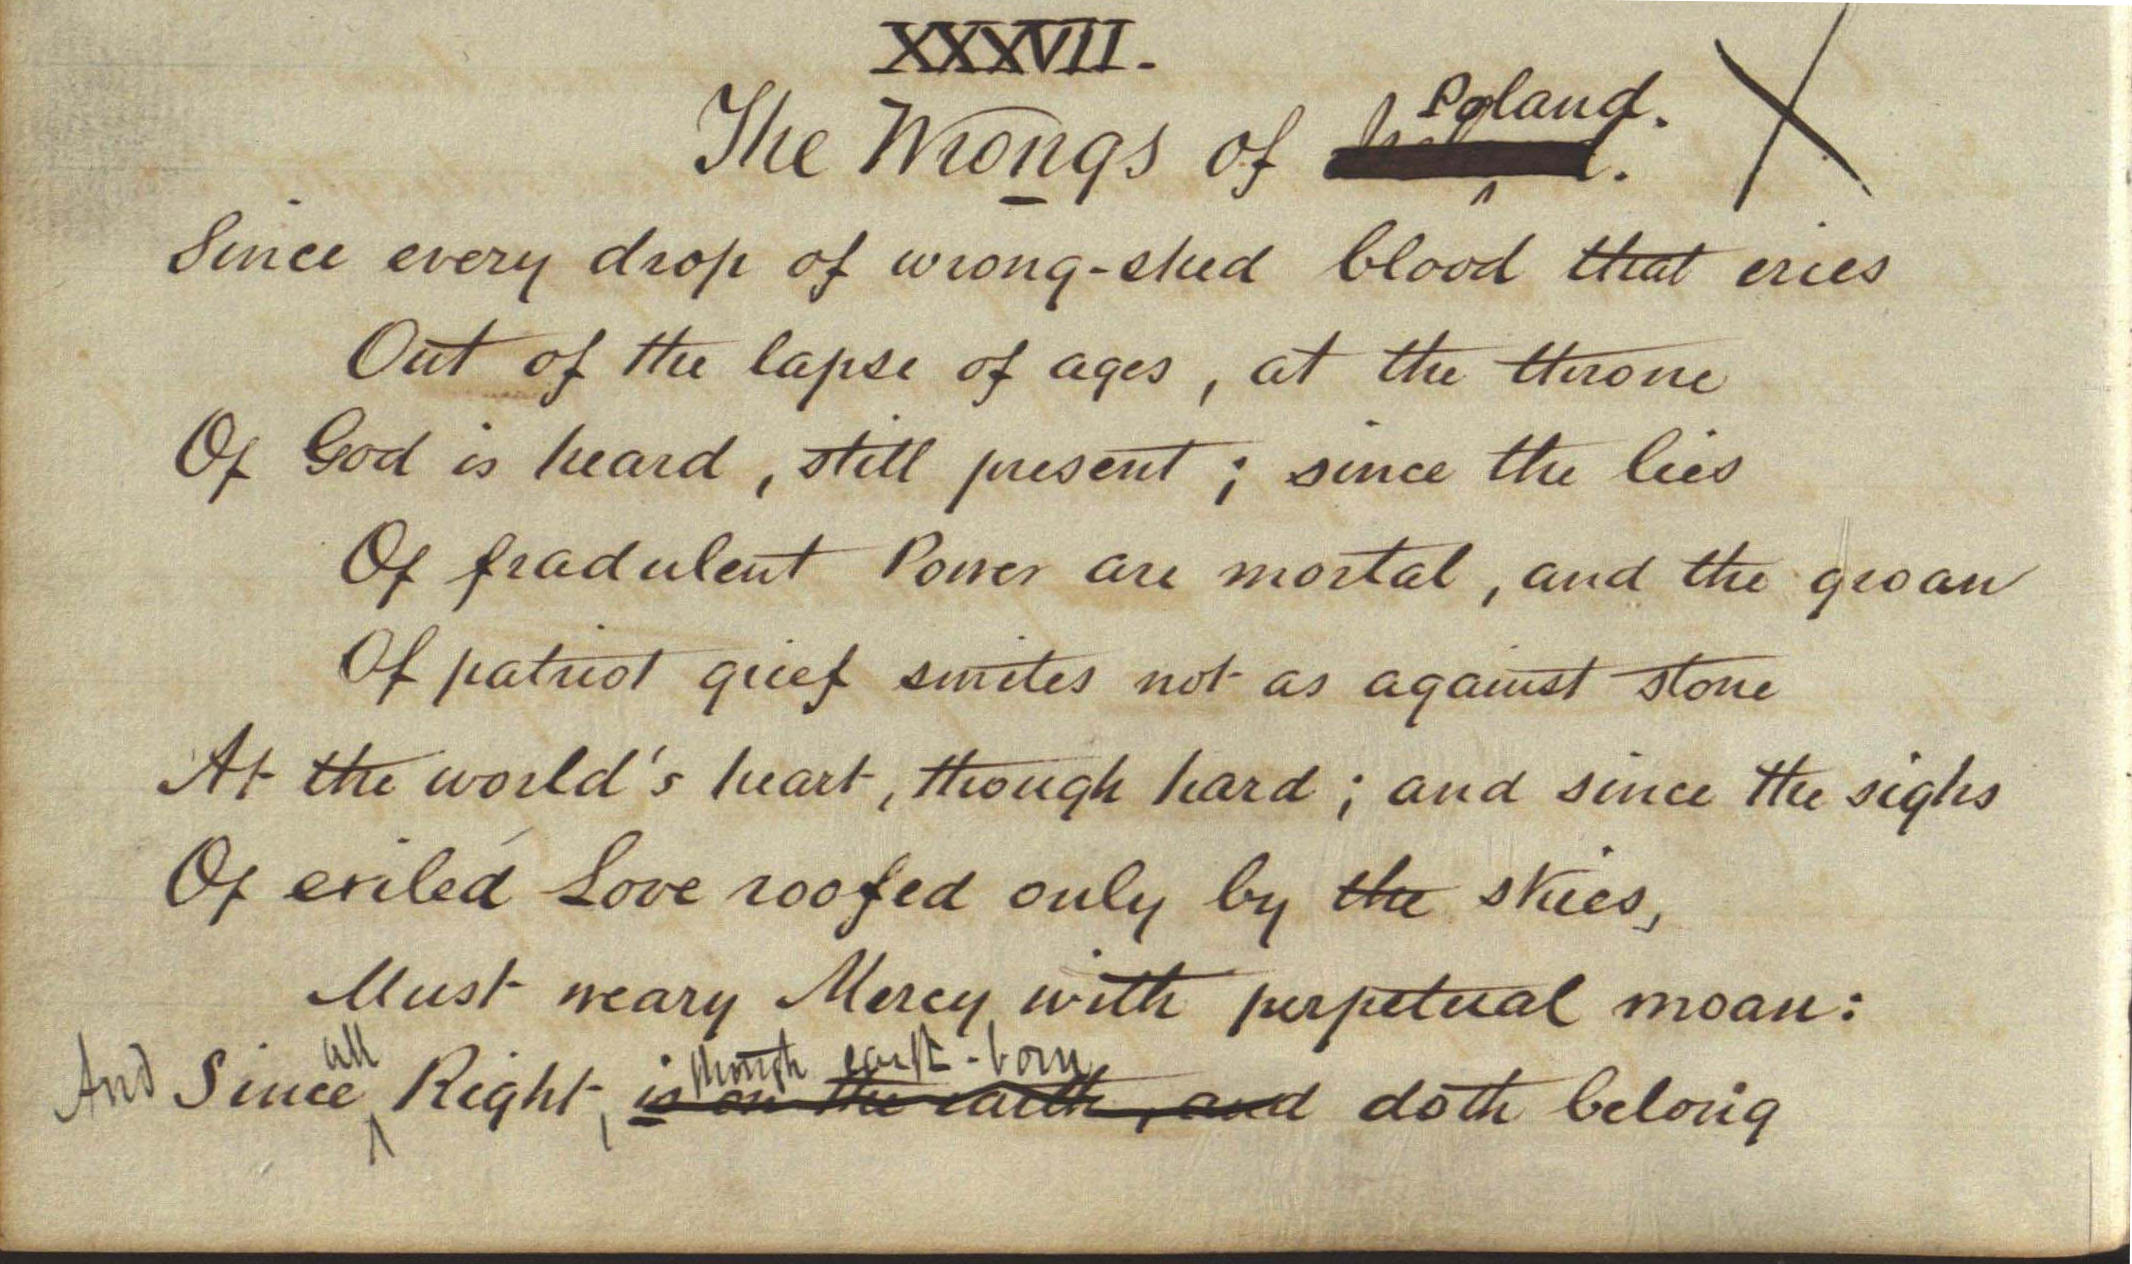 XXXVII.
The Wrongs of Poland.
Since every drop of wrong-shed blood that cries
Out of the lapse of ages, at the throne
Of God is heard, still present; since the lies
Of fradulent Power are mortal, and the groan
Of patriot grief smites not as against stone
At the world's heart, though hard; and since the sighs
Of exiled Love roofed only by the skies,
Must weary Mercy with perpetual moan:
all though earth-born
And Since Right, is on the earth, and doth belong